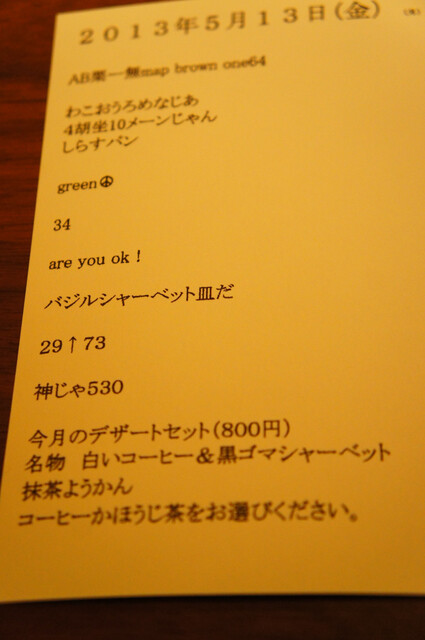 2013年5月13日(金)
AB栗一無map brown one64
わこおうろめなじあ
4胡坐10メーンじゃん
しらすパン
green☮
34
are you ok！
バジルシャーベット皿だ
29↑73
神じゃ530
今月のデザートセット(800円)
名物　白いコーヒー＆黒ゴマシャーベット
抹茶ようかん
コーヒーかほうじ茶をお選びください。